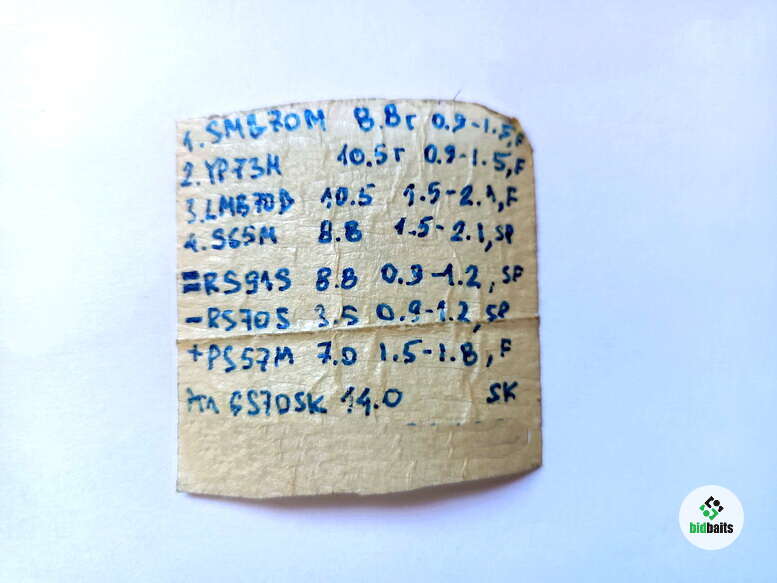 1. SMB70M 8.8г 0.9-1.5, F
2. YP73M 10.5г 0.9-1.5, F
3. LMB70D 10.5 1.5-2.1, F
4. S65M 8.8 1.5-2.1, SP
=RS91S 8.8 0.9-1.2, SP
-RS70S 3.5 0.9-1.2, SP
+PS57M 7.0 1.5-1.8, F
GS70SK 14.0 SK
bidbaits